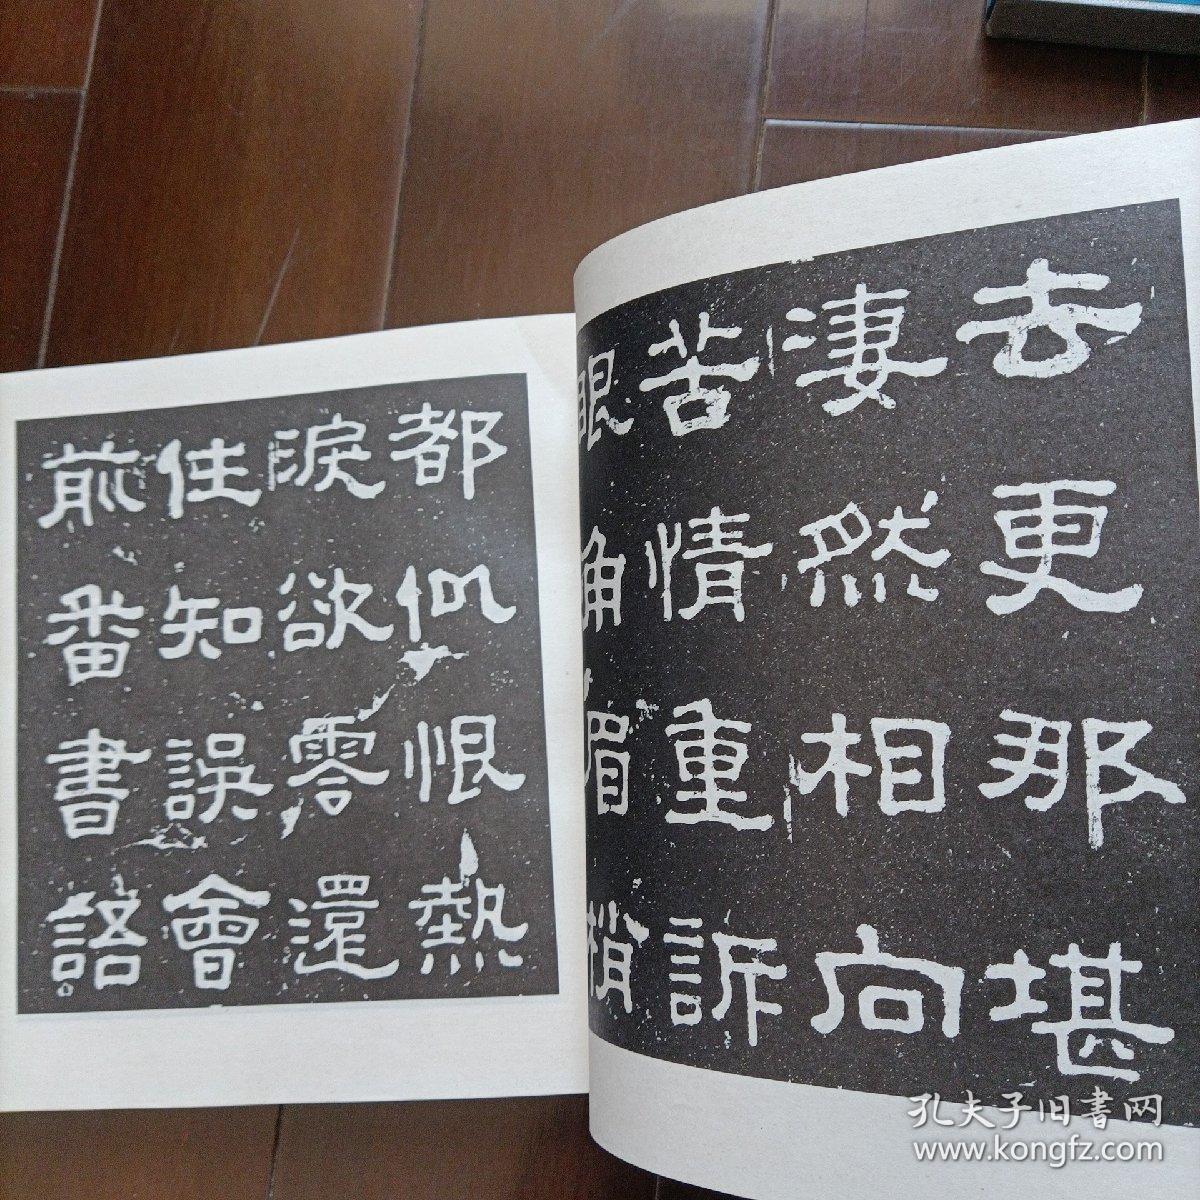 去更那堪
淒然相向
苦情重訴
眼角眉梢
都似恨熱
淚欲零還
住知誤會
前番書語
孔夫子旧書网
www.kongfz.com